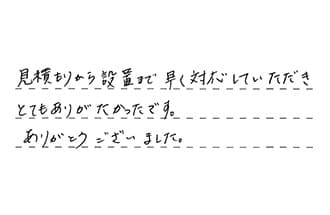 見積もりから設置まで早く対応していただき
とてもありがたかったです。
ありがとうございました。